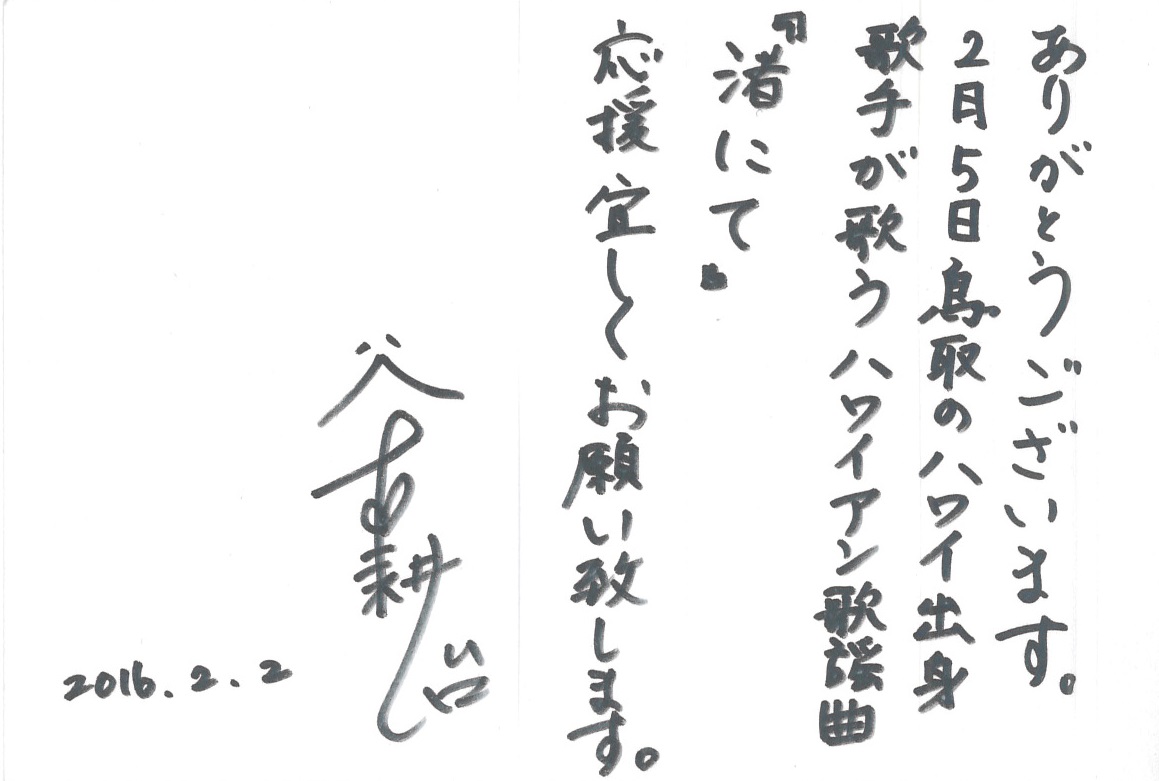 ありがとうございます。
2月5日鳥取のハワイ出身
歌手が歌うハワイアン歌謡曲
『渚にて』
応援宜しくお願い致します。
谷本耕治
2016.2.2